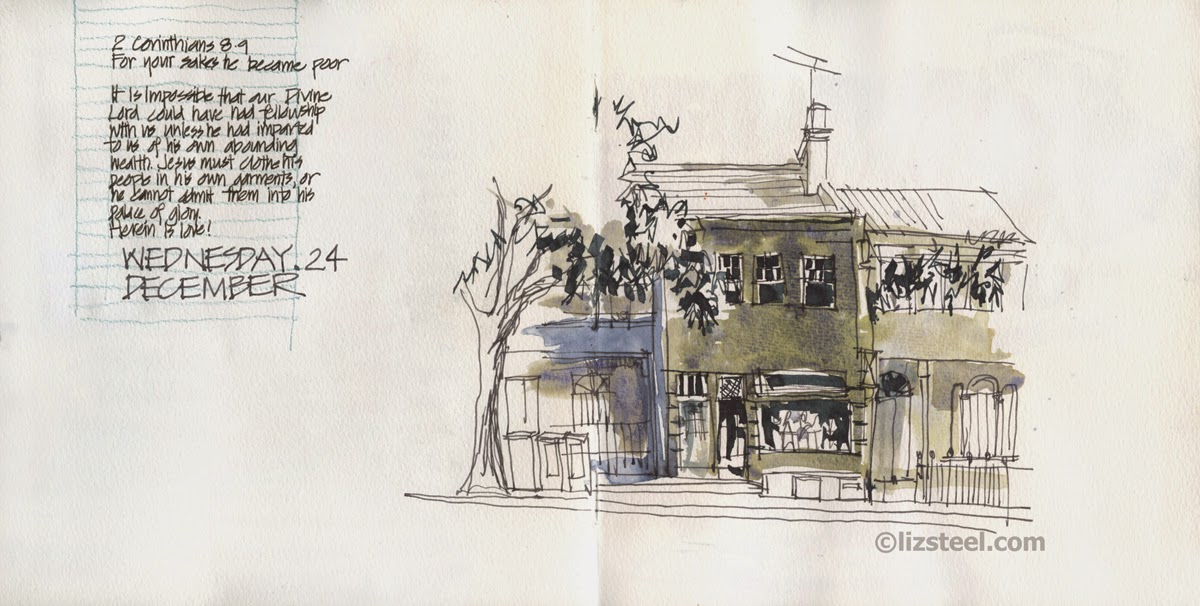 2 Corinthians 8·9
For your sakes he became poor
It is impossible that our Divine
Lord could have had fellowship
with us, unless he had imparted
to us of his own abounding
wealth. Jesus must clothe his
people in his own garments, or
he cannot admit them into his
palace of glory.
Herein is love!
WEDNESDAY. 24
DECEMBER
©lizsteel.com